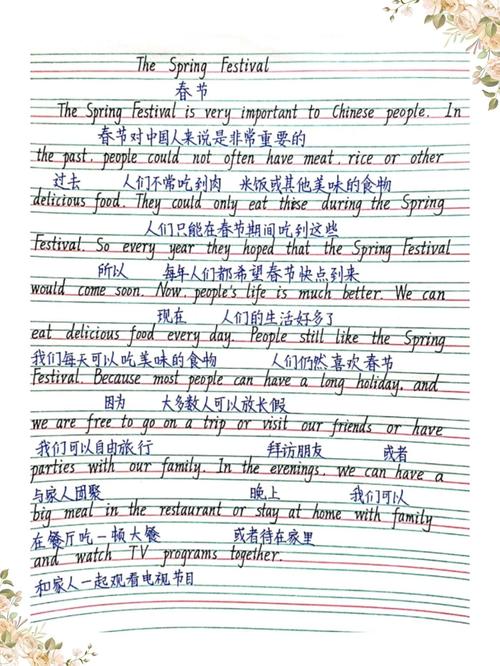 The Spring Festival
春节
The Spring Festival is very important to Chinese people. In
春节对中国人来说是非常重要的
the past, people could not often have meat, rice or other
过去 人们不常吃到肉 米饭或其他美味的食物
delicious food. They could only eat these during the Spring
人们只能在春节期间吃到这些
Festival. So every year they hoped that the Spring Festival
所以 每年人们都希望春节快点到来
would come soon. Now, people's life is much better. We can
现在 人们的生活好多了
eat delicious food every day. People still like the Spring
我们每天可以吃美味的食物 人们仍然喜欢春节
Festival. Because most people can have a long holiday, and
因为 大多数人可以放长假
we are free to go on a trip or visit our friends or have
我们可以自由旅行 拜访朋友 或者
parties with our family. In the evenings, we can have a
与家人团聚 晚上 我们可以
big meal in the restaurant or stay at home with family
在餐厅吃一顿大餐 或者待在家里
and watch TV programs together.
和家人一起观看电视节目